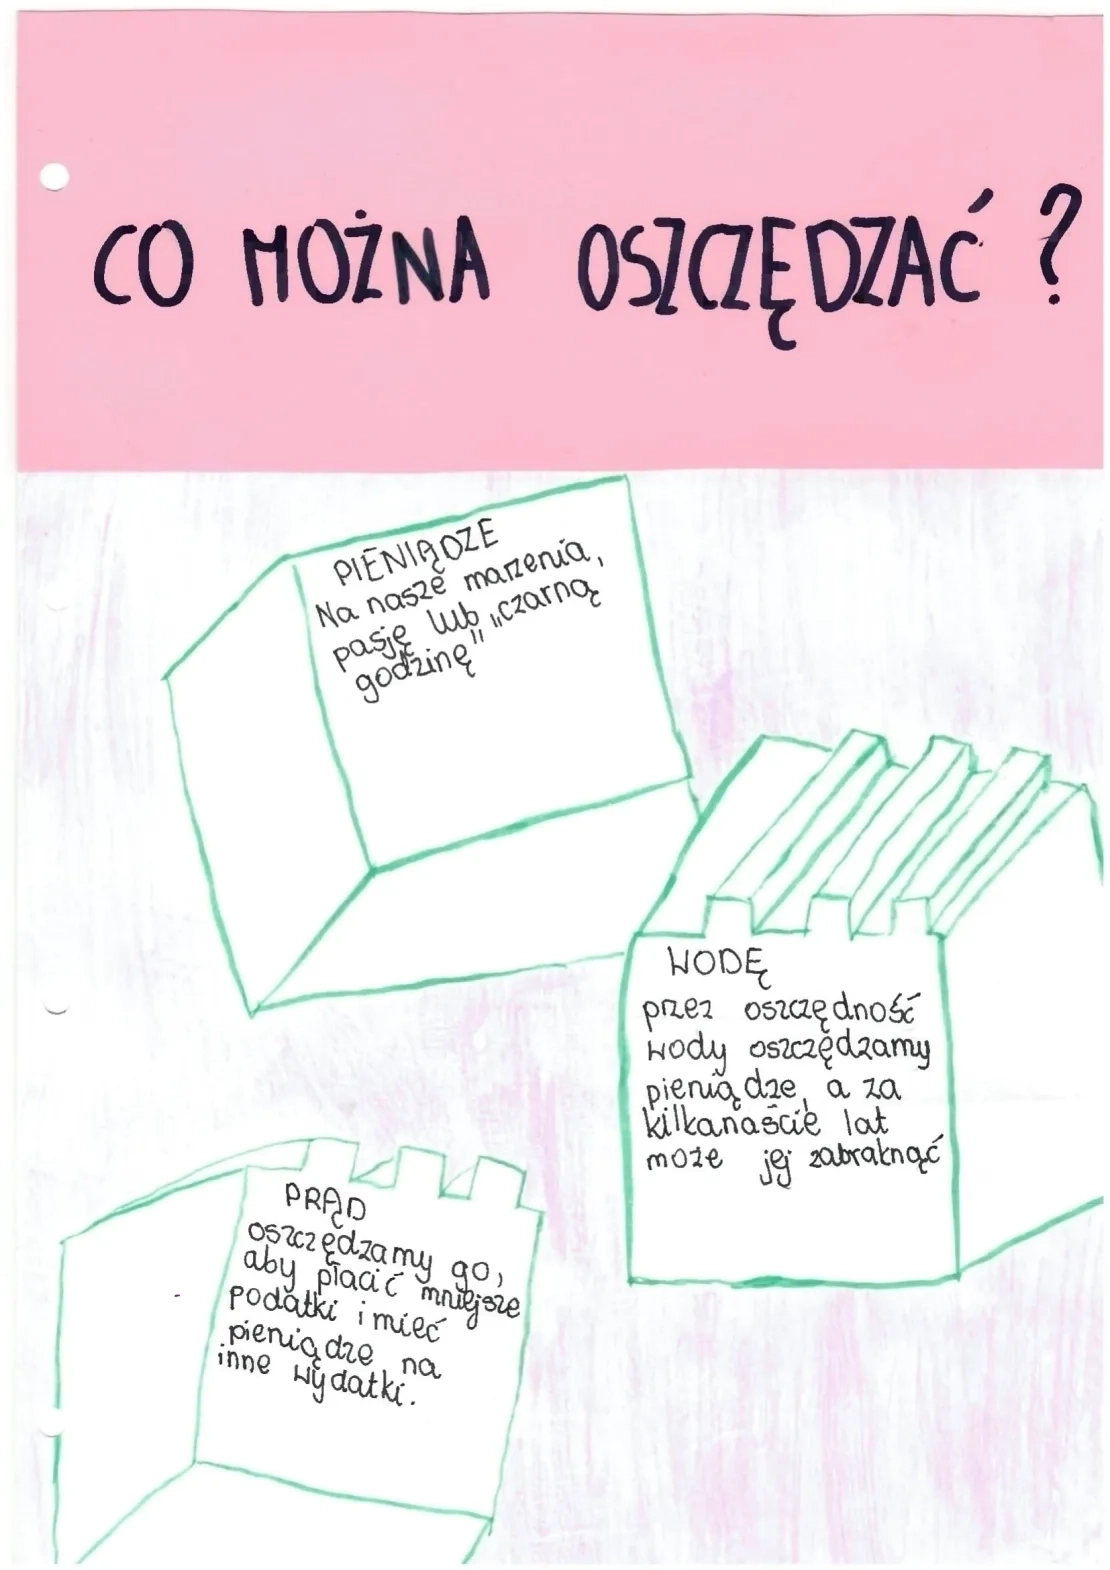 CO MOŻNA OSZCZĘDZAĆ ?
PIENIĄDZE
Na nasze marzenia,
pasję lub „czarną
godzinę"
WODĘ
przez oszczędność
wody oszczędzamy
pieniądze, a za
kilkanaście lat
może jej zabraknąć
PRĄD
oszczędzamy go,
aby płacić mniejsze
podatki i mieć
pieniądze na
inne wydatki.